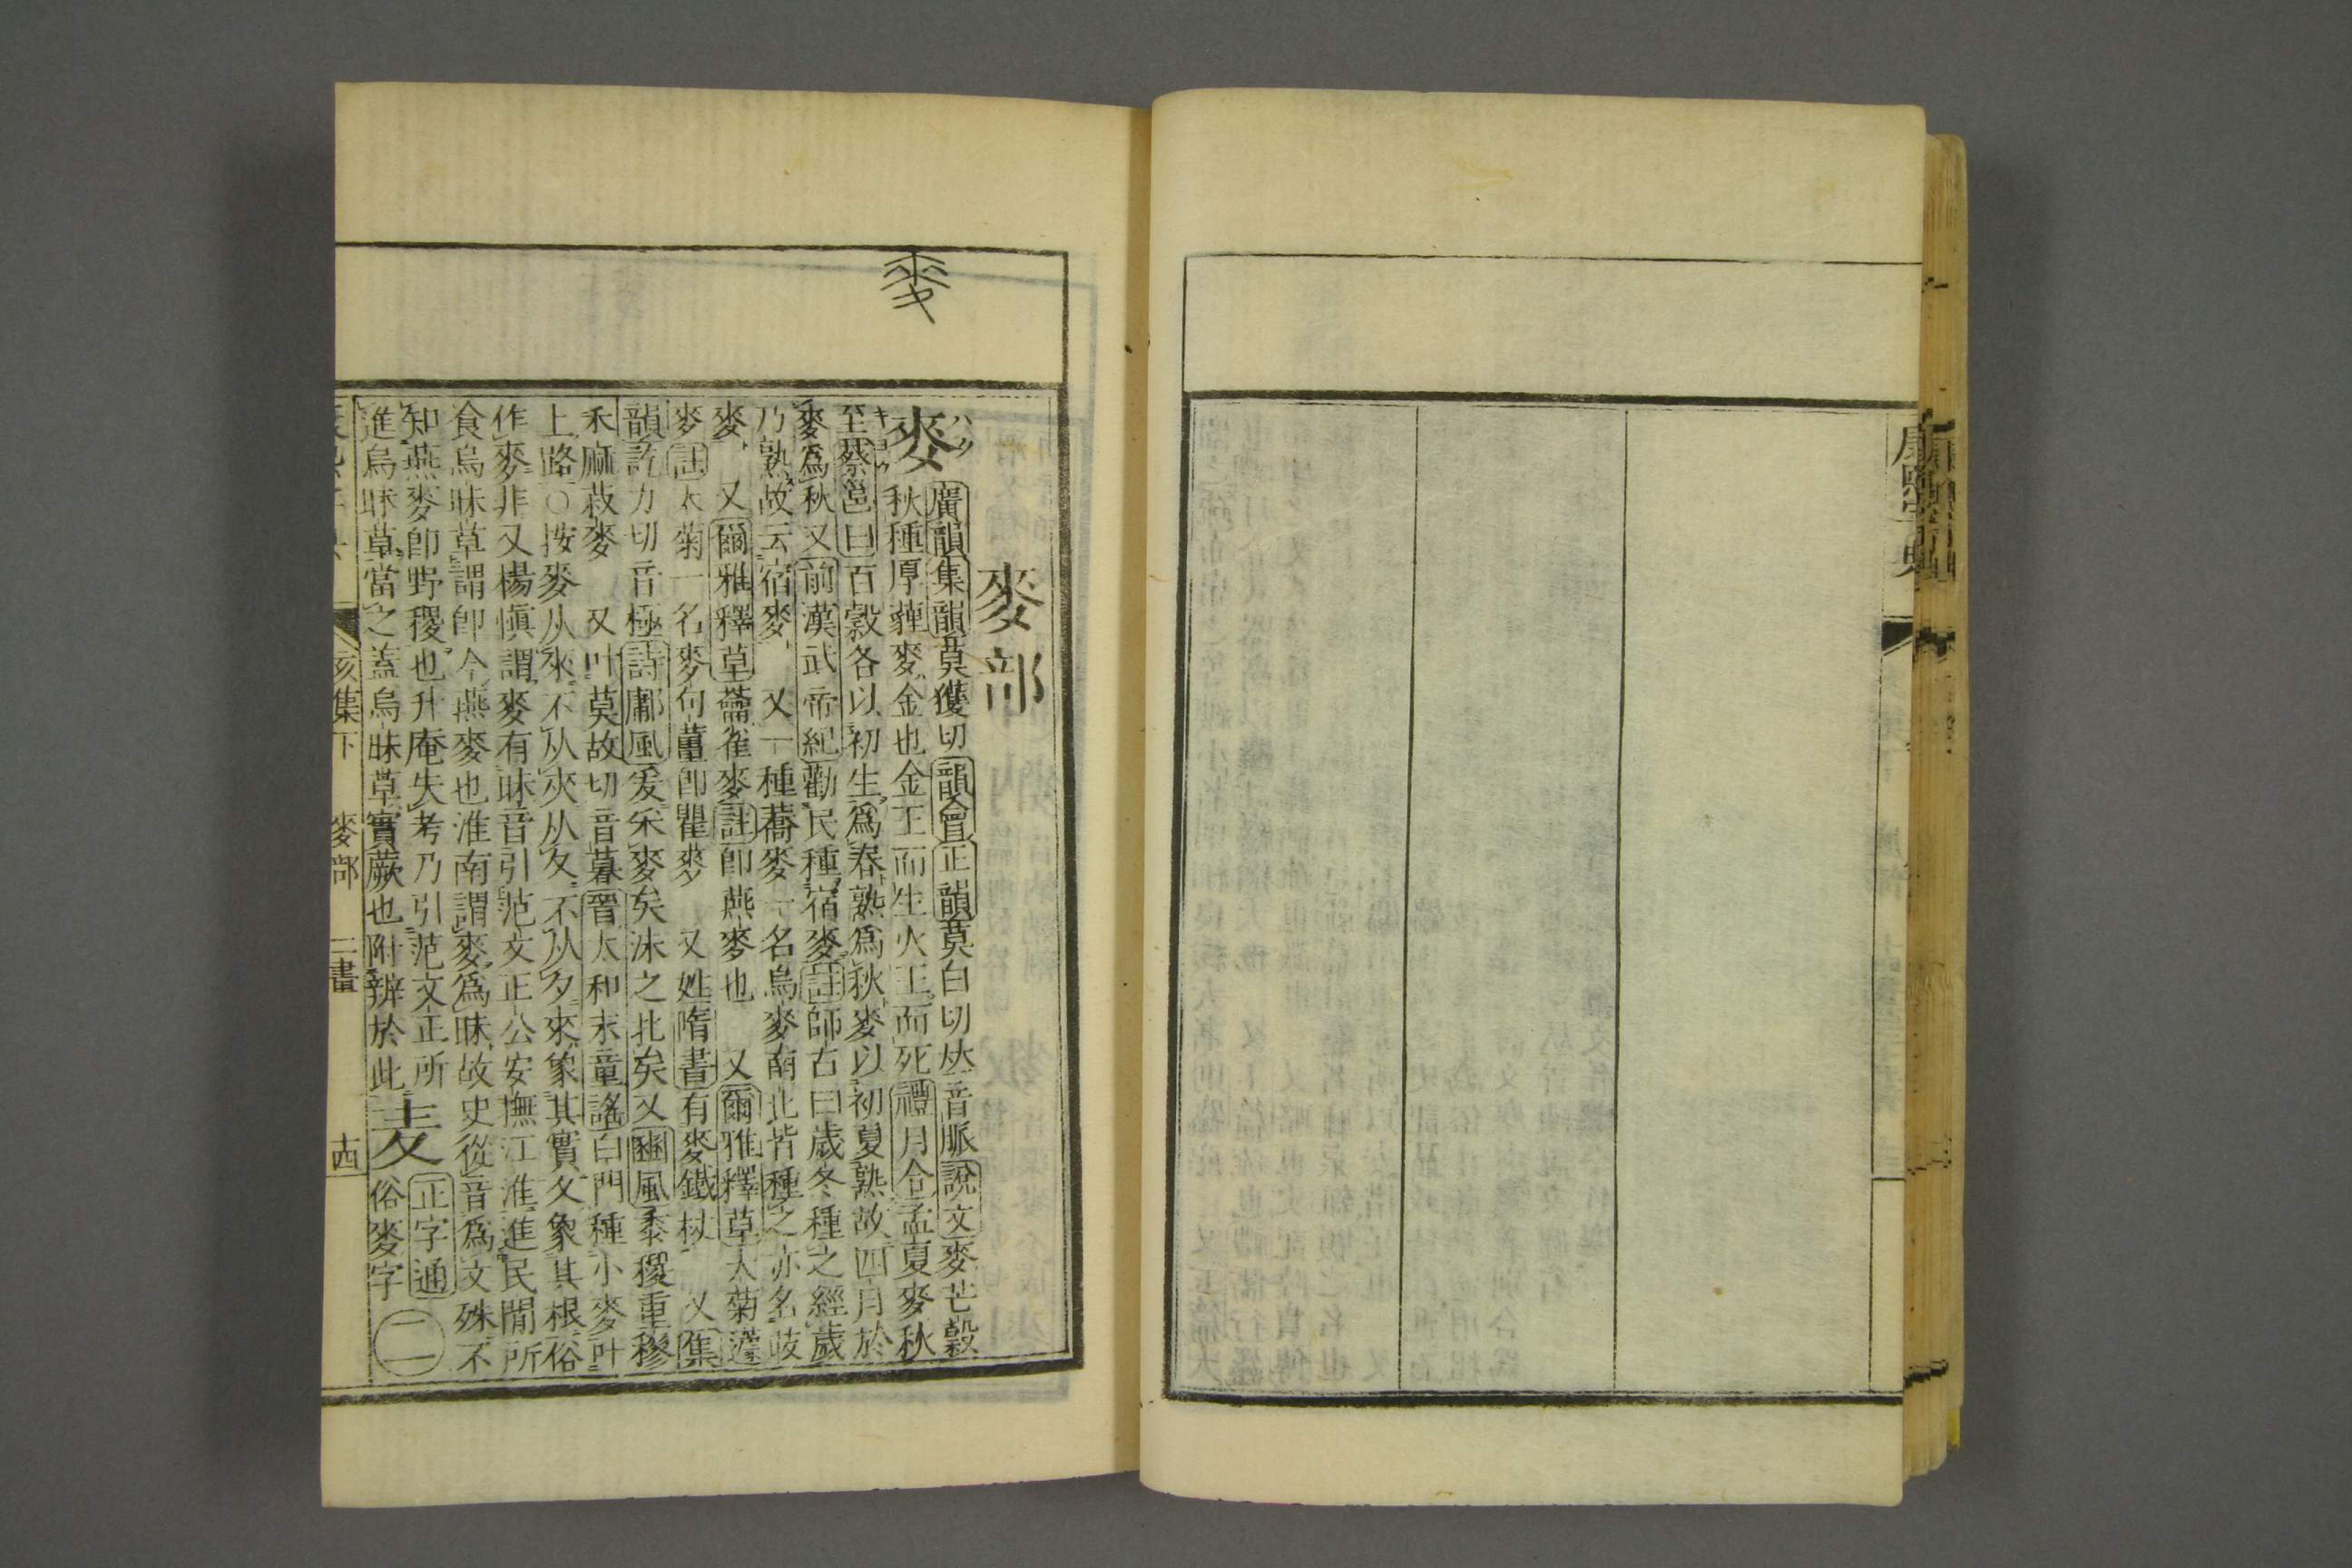 康熙字典
麥部
麥
バク
キョク
麥
廣韻集韻莫獲切韻會正韻莫白切𠀤音脈說文麥芒穀
秋種厚薶麥金也金王而生火王而死禮月令孟夏麥秋
至蔡邕曰百穀各以初生爲春熟爲秋麥以初夏熟故四月於
麥爲秋又前漢武帝紀勸民種宿麥註師古曰歲冬種之經歲
乃熟故云宿麥 又一種蕎麥一名烏麥南北皆種之亦名荍
麥 又爾雅釋草蘥雀麥註卽燕麥也 又爾雅釋草大菊蘧
麥註大菊一名麥句薑卽瞿麥 又姓隋書有麥鐵杖 又集
韻訖力切音極詩鄘風爰采麥矣沬之北矣又豳風黍稷重穋
禾麻菽麥 又叶莫故切音暮晉太和末童謠白門種小麥叶
上路○按麥从來不从夾从夊不从夕來象其實夊象其根俗
作麥非又楊愼謂麥有昧音引范文正公安撫江淮進民閒所
食烏昧草謂卽今燕麥也淮南謂麥爲昧故史從音爲文殊不
知燕麥卽野稷也升庵失考乃引范文正所
進烏昧草當之蓋烏昧草實蕨也附辨於此
麦
正字通
俗麥字
二
亥集下 麥部 二畫 十四